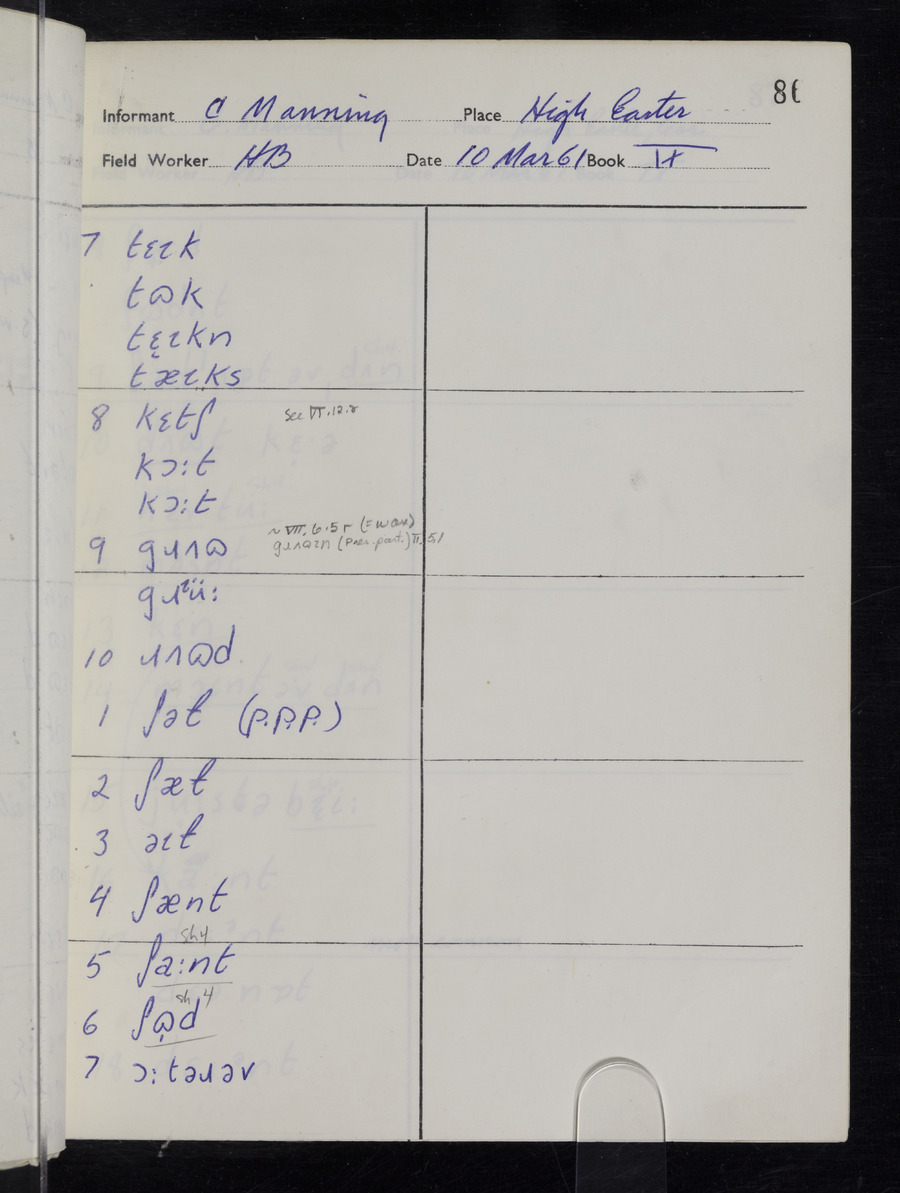 86
Informant C Manning Place High Easter
Field Worker HB Date 10 Mar 61 Book IX
7 tɛɪk
tɷk
tɛ̞ɪkn
tæɪks
8 kɛtʃ see VI.12.8
kɔːt
kɔːt
~ VII.6.5 r (= wore)
9 gɹʌɷ gɹʌɷɪn (Pres. part.) II.5.1
gɹɪüː
10 ɹʌɷd
1 ʃət (P.P.P.)
2 ʃæt
3 əɪt
4 ʃænt
sh 4
5 ʃaːnt
sh 4
6 ʃɷ̞d
7 ɔːtəɹəv